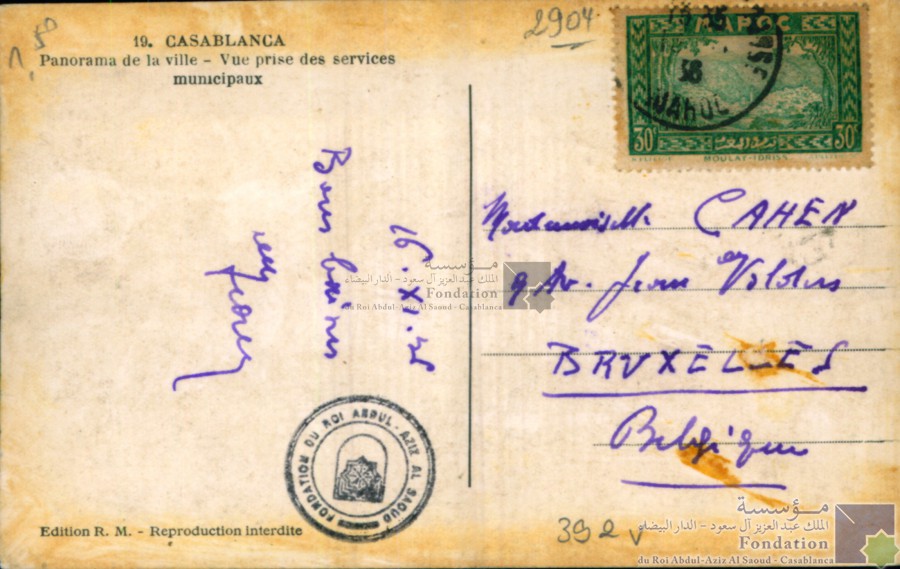 1,50
19. CASABLANCA
Panorama de la ville – Vue prise des services
municipaux
2904
MAROC
36
30ᶜ 30ᶜ
MOULAY-IDRISS
16. XI. 36
Bons baisers
Mademoiselle CAHEN
9 Av. Jean Volders
BRUXELLES
Belgique
مؤسسة
الملك عبد العزيز آل سعود - الدار البيضاء
Fondation
du Roi Abdul-Aziz Al Saoud - Casablanca
FONDATION DU ROI ABDUL-AZIZ AL SAOUD
Edition R. M. - Reproduction interdite
392 v
مؤسسة
الملك عبد العزيز آل سعود - الدار البيضاء
Fondation
du Roi Abdul-Aziz Al Saoud - Casablanca